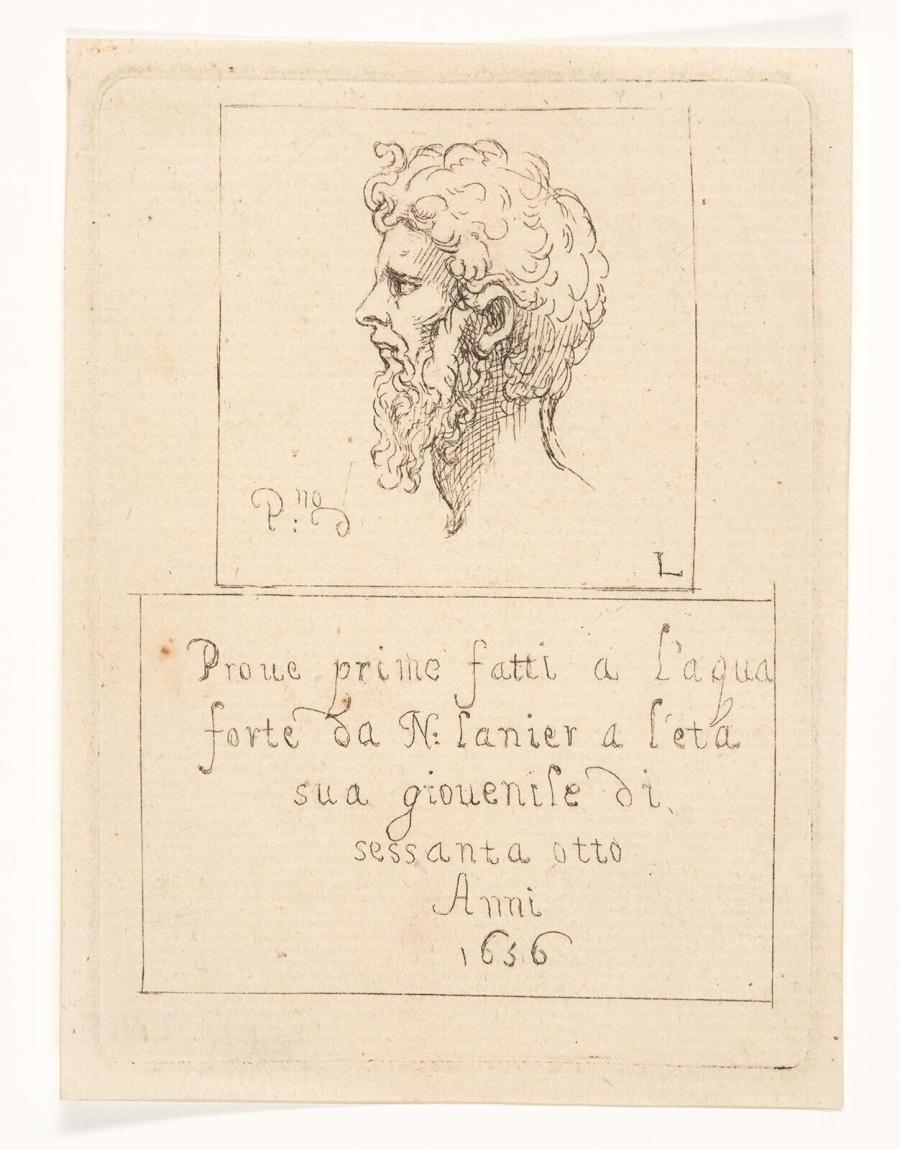 P.no
L
Proue prime fatti a l'aqua
forte da N: lanier a l'età
sua giouenile di
sessanta otto
Anni
1656